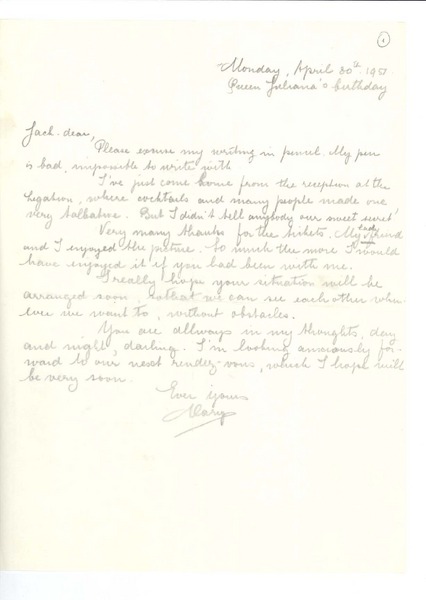 1
Monday, April 30th. 1951.
Queen Juliana's birthday
Jack-dear,
Please excuse my writing in pencil. My pen
is bad, impossible to write with.
I've just come home from the reception at the
Legation, where cocktails and many people made one
very talkative. But I didn't tell anybody our sweet secret!
Very many thanks for the tickets. My lady friend
and I enjoyed the picture. So much the more I would
have enjoyed it if you had been with me.
I really hope your situation will be
arranged soon, so that we can see each other when
ever we want to, without obstacles.
You are allways in my thoughts, day
and night, darling. I'm looking anxiously for-
ward to our next rendez-vous, which I hope will
be very soon.
Ever yours
Mary